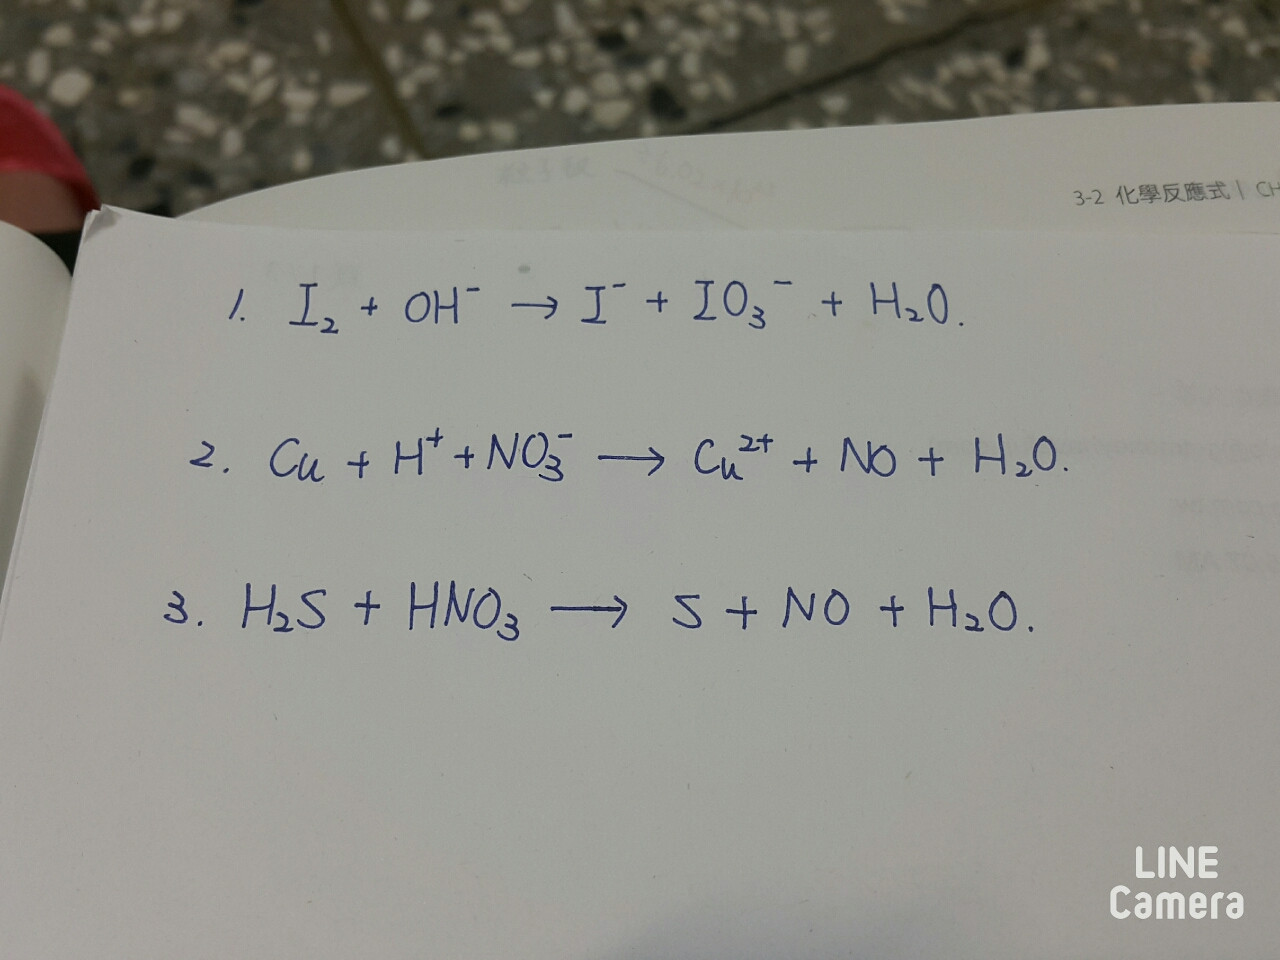 3-2 化學反應式 | CH
1. I₂ + OH⁻ → I⁻ + IO₃⁻ + H₂O.
2. Cu + H⁺ + NO₃⁻ → Cu²⁺ + NO + H₂O.
3. H₂S + HNO₃ → S + NO + H₂O.
LINE
Camera